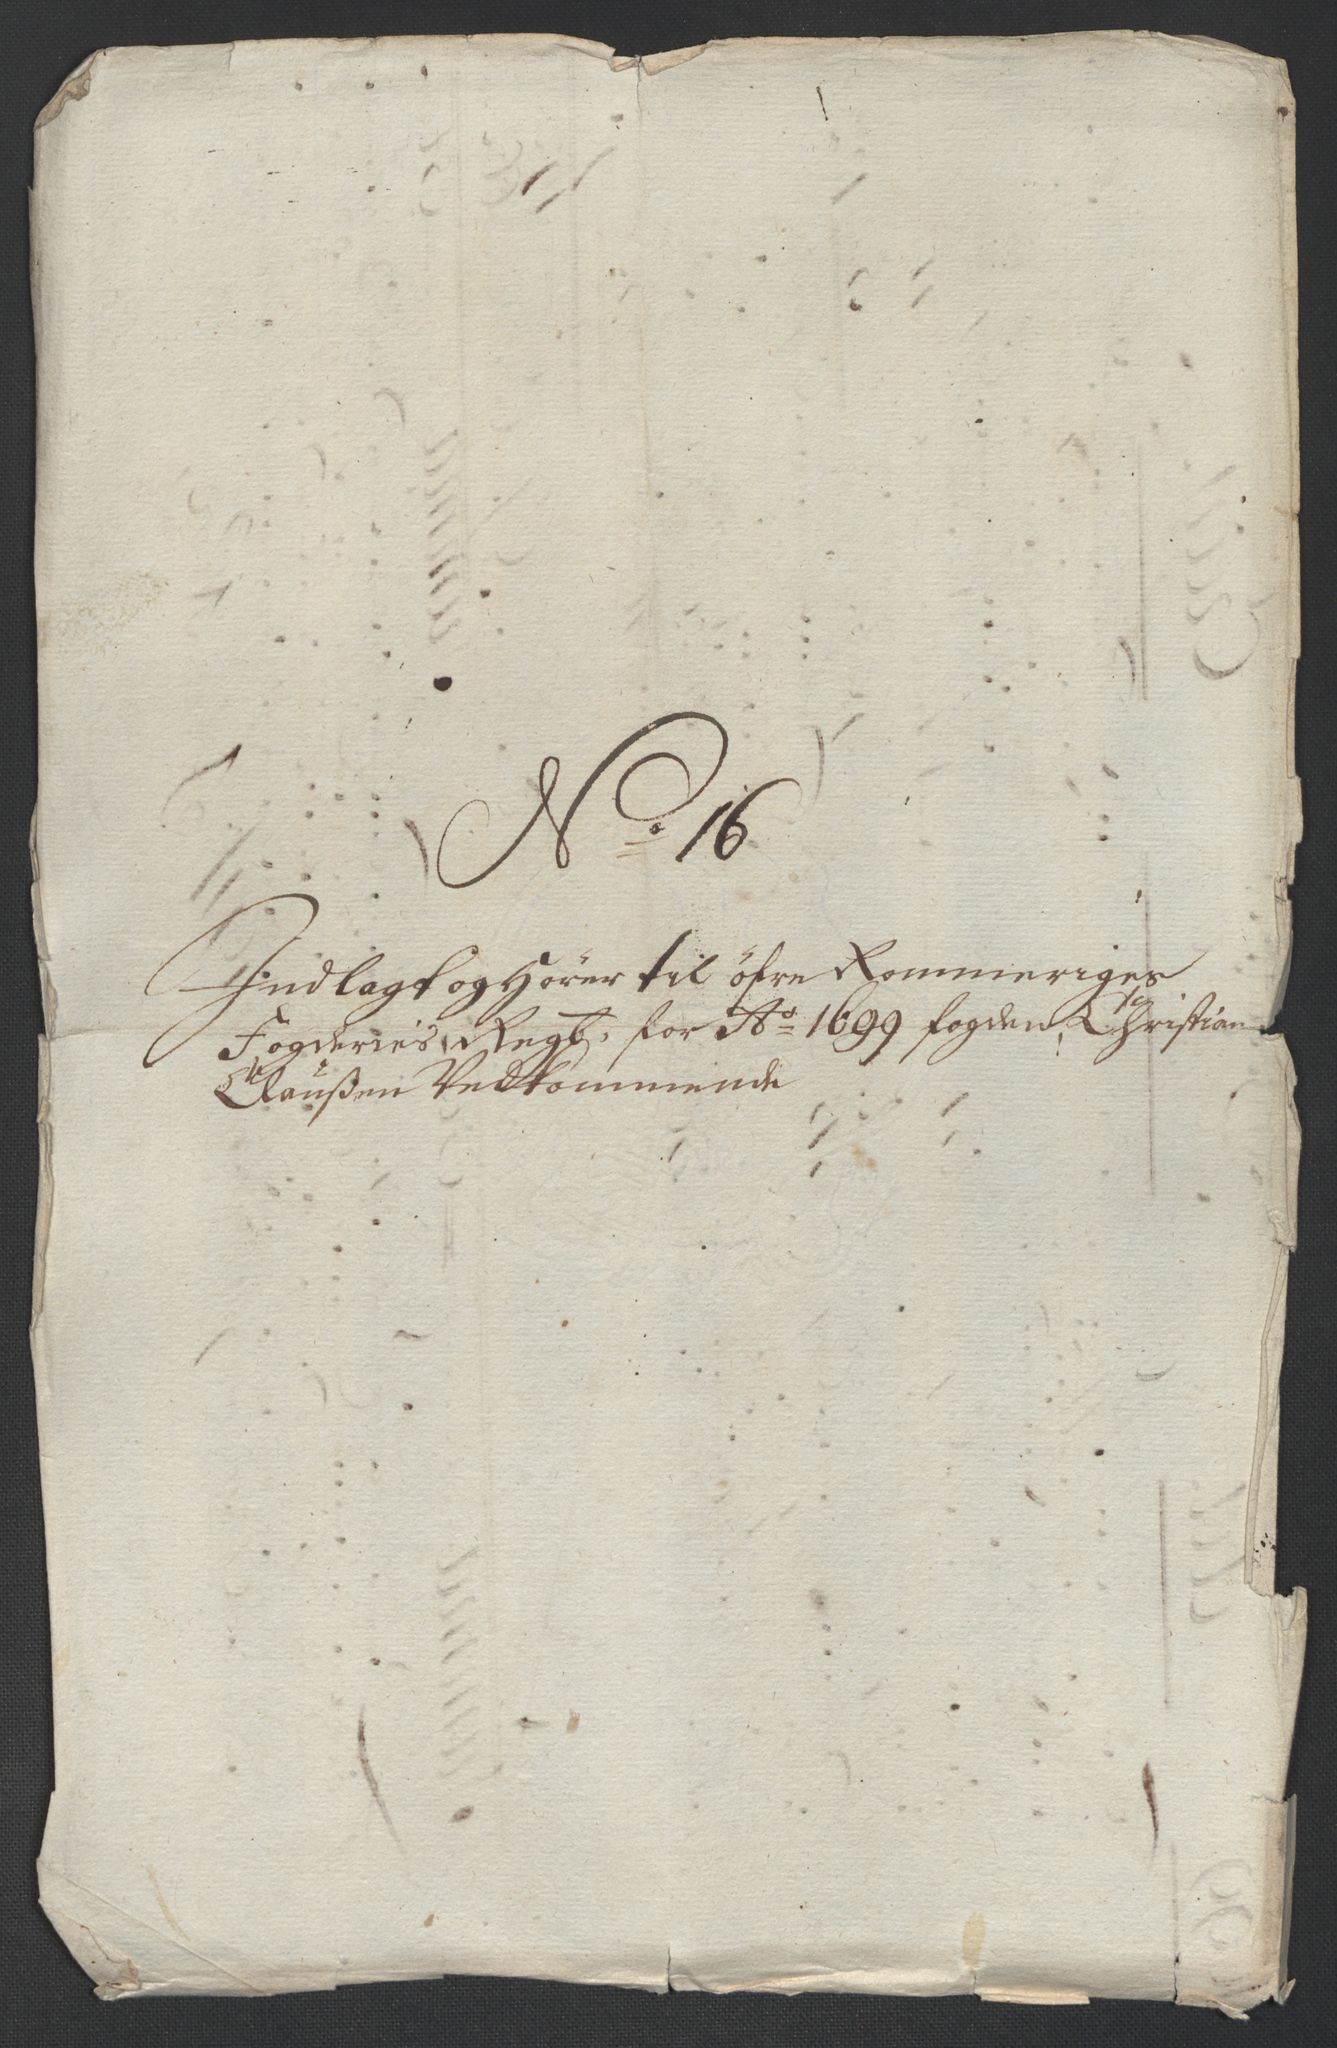 No 16
Indlagt og Hörer til öfre Rommeriges
Fogderies Regb: for Ao 1699 fogden Christian
Claußen Vedkommende